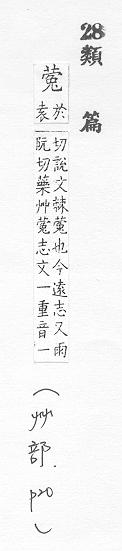 28類篇
蒬
於袁
切說文棘蒬也今遠志又雨
阮切藥艸蒬志文一重音一
(艸部. p20)